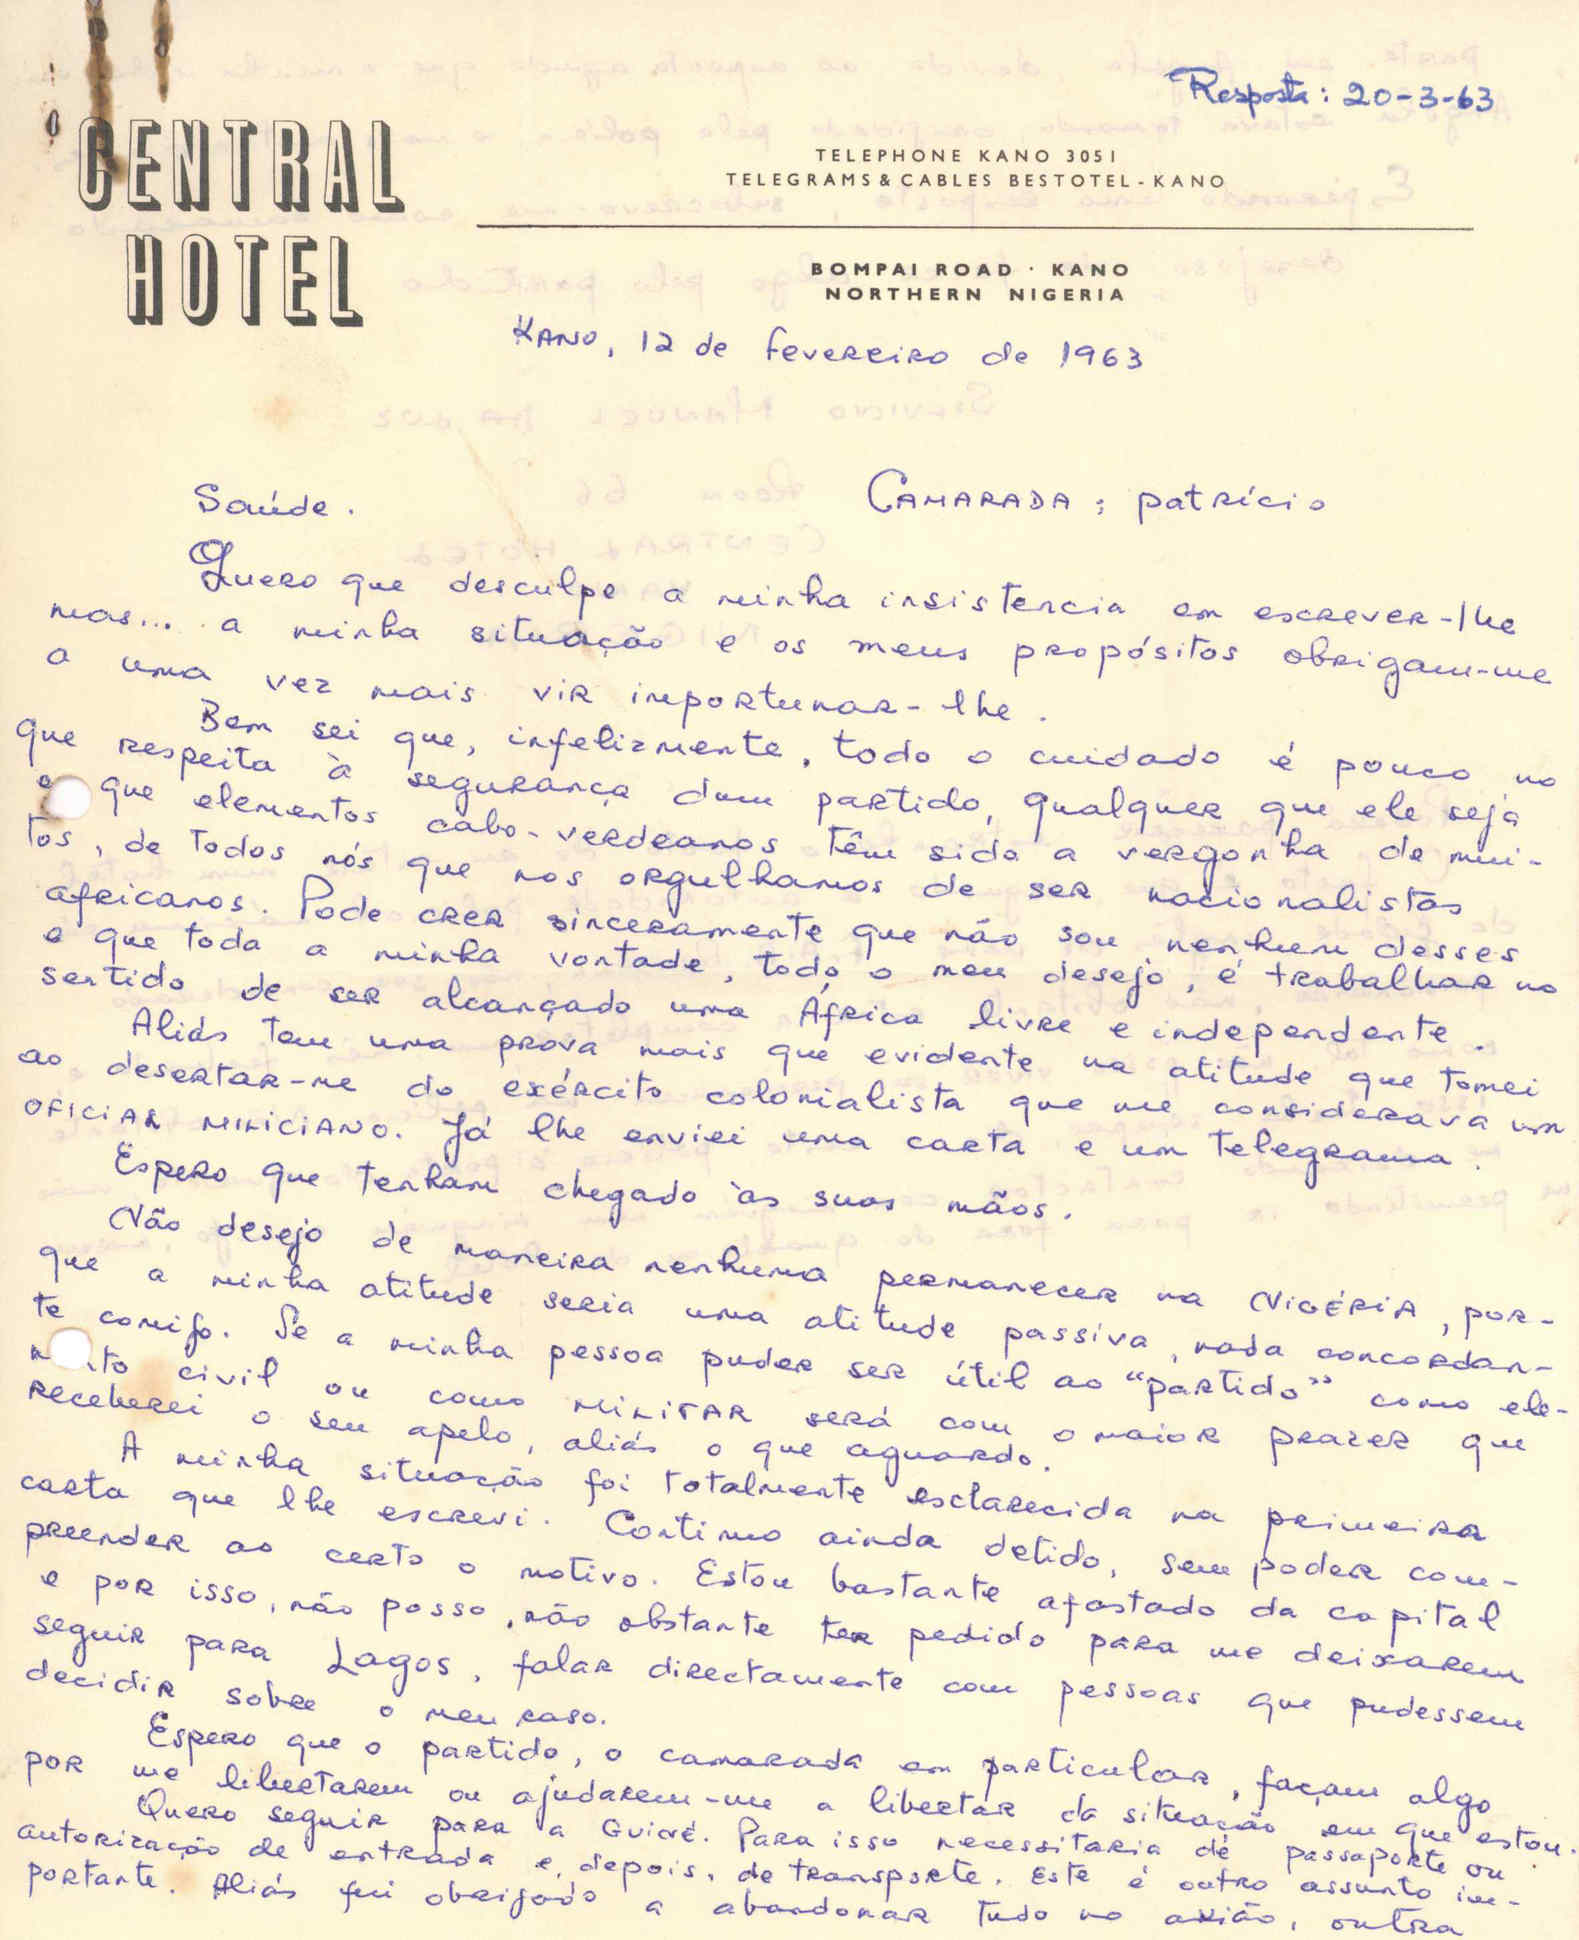 Resposta: 20-3-63
CENTRAL
HOTEL
TELEPHONE KANO 3051
TELEGRAMS & CABLES BESTOTEL-KANO
BOMPAI ROAD · KANO
NORTHERN NIGERIA
KANO, 12 de fevereiro de 1963
Saúde.
CAMARADA; patrício
Quero que desculpe a minha insistencia em escrever-lhe
mas... a minha situação e os meus propósitos obrigam-me
a uma vez mais vir importunar-lhe.
Bem sei que, infelizmente, todo o cuidado é pouco no
que respeita à segurança dum partido, qualquer que ele seja
e que elementos cabo-verdeanos têm sido a vergonha de mui-
tos, de todos nós que nos orgulhamos de ser nacionalistas
africanos. Pode crer sinceramente que não sou nenhum desses
e que toda a minha vontade, todo o meu desejo, é trabalhar no
sentido de ser alcançado uma África livre e independente.
Aliás tem uma prova mais que evidente na atitude que tomei
ao desertar-me do exército colonialista que me considerava um
OFICIAL MILICIANO. Já lhe enviei uma carta e um telegrama.
Espero que tenham chegado às suas mãos.
Não desejo de maneira nenhuma permanecer na NIGÉRIA, por-
que a minha atitude seria uma atitude passiva, nada concordan-
te comigo. Se a minha pessoa puder ser útil ao "partido" como ele-
mento civil ou como MILITAR será com o maior prazer que
receberei o seu apelo, aliás o que aguardo.
A minha situação foi totalmente esclarecida na primeira
carta que lhe escrevi. Continuo ainda detido, sem poder com-
preender ao certo o motivo. Estou bastante afastado da capital
e por isso, não posso, não obstante ter pedido para me deixarem
seguir para Lagos, falar directamente com pessoas que pudessem
decidir sobre o meu caso.
Espero que o partido, o camarada em particular, façam algo
por me libertarem ou ajudarem-me a libertar da situação em que estou.
Quero seguir para a Guiné. Para isso necessitaria de passaporte ou
autorização de entrada e, depois, de transporte. Este é outro assunto im-
portante. Aliás fui obrigado a abandonar tudo no avião, outra